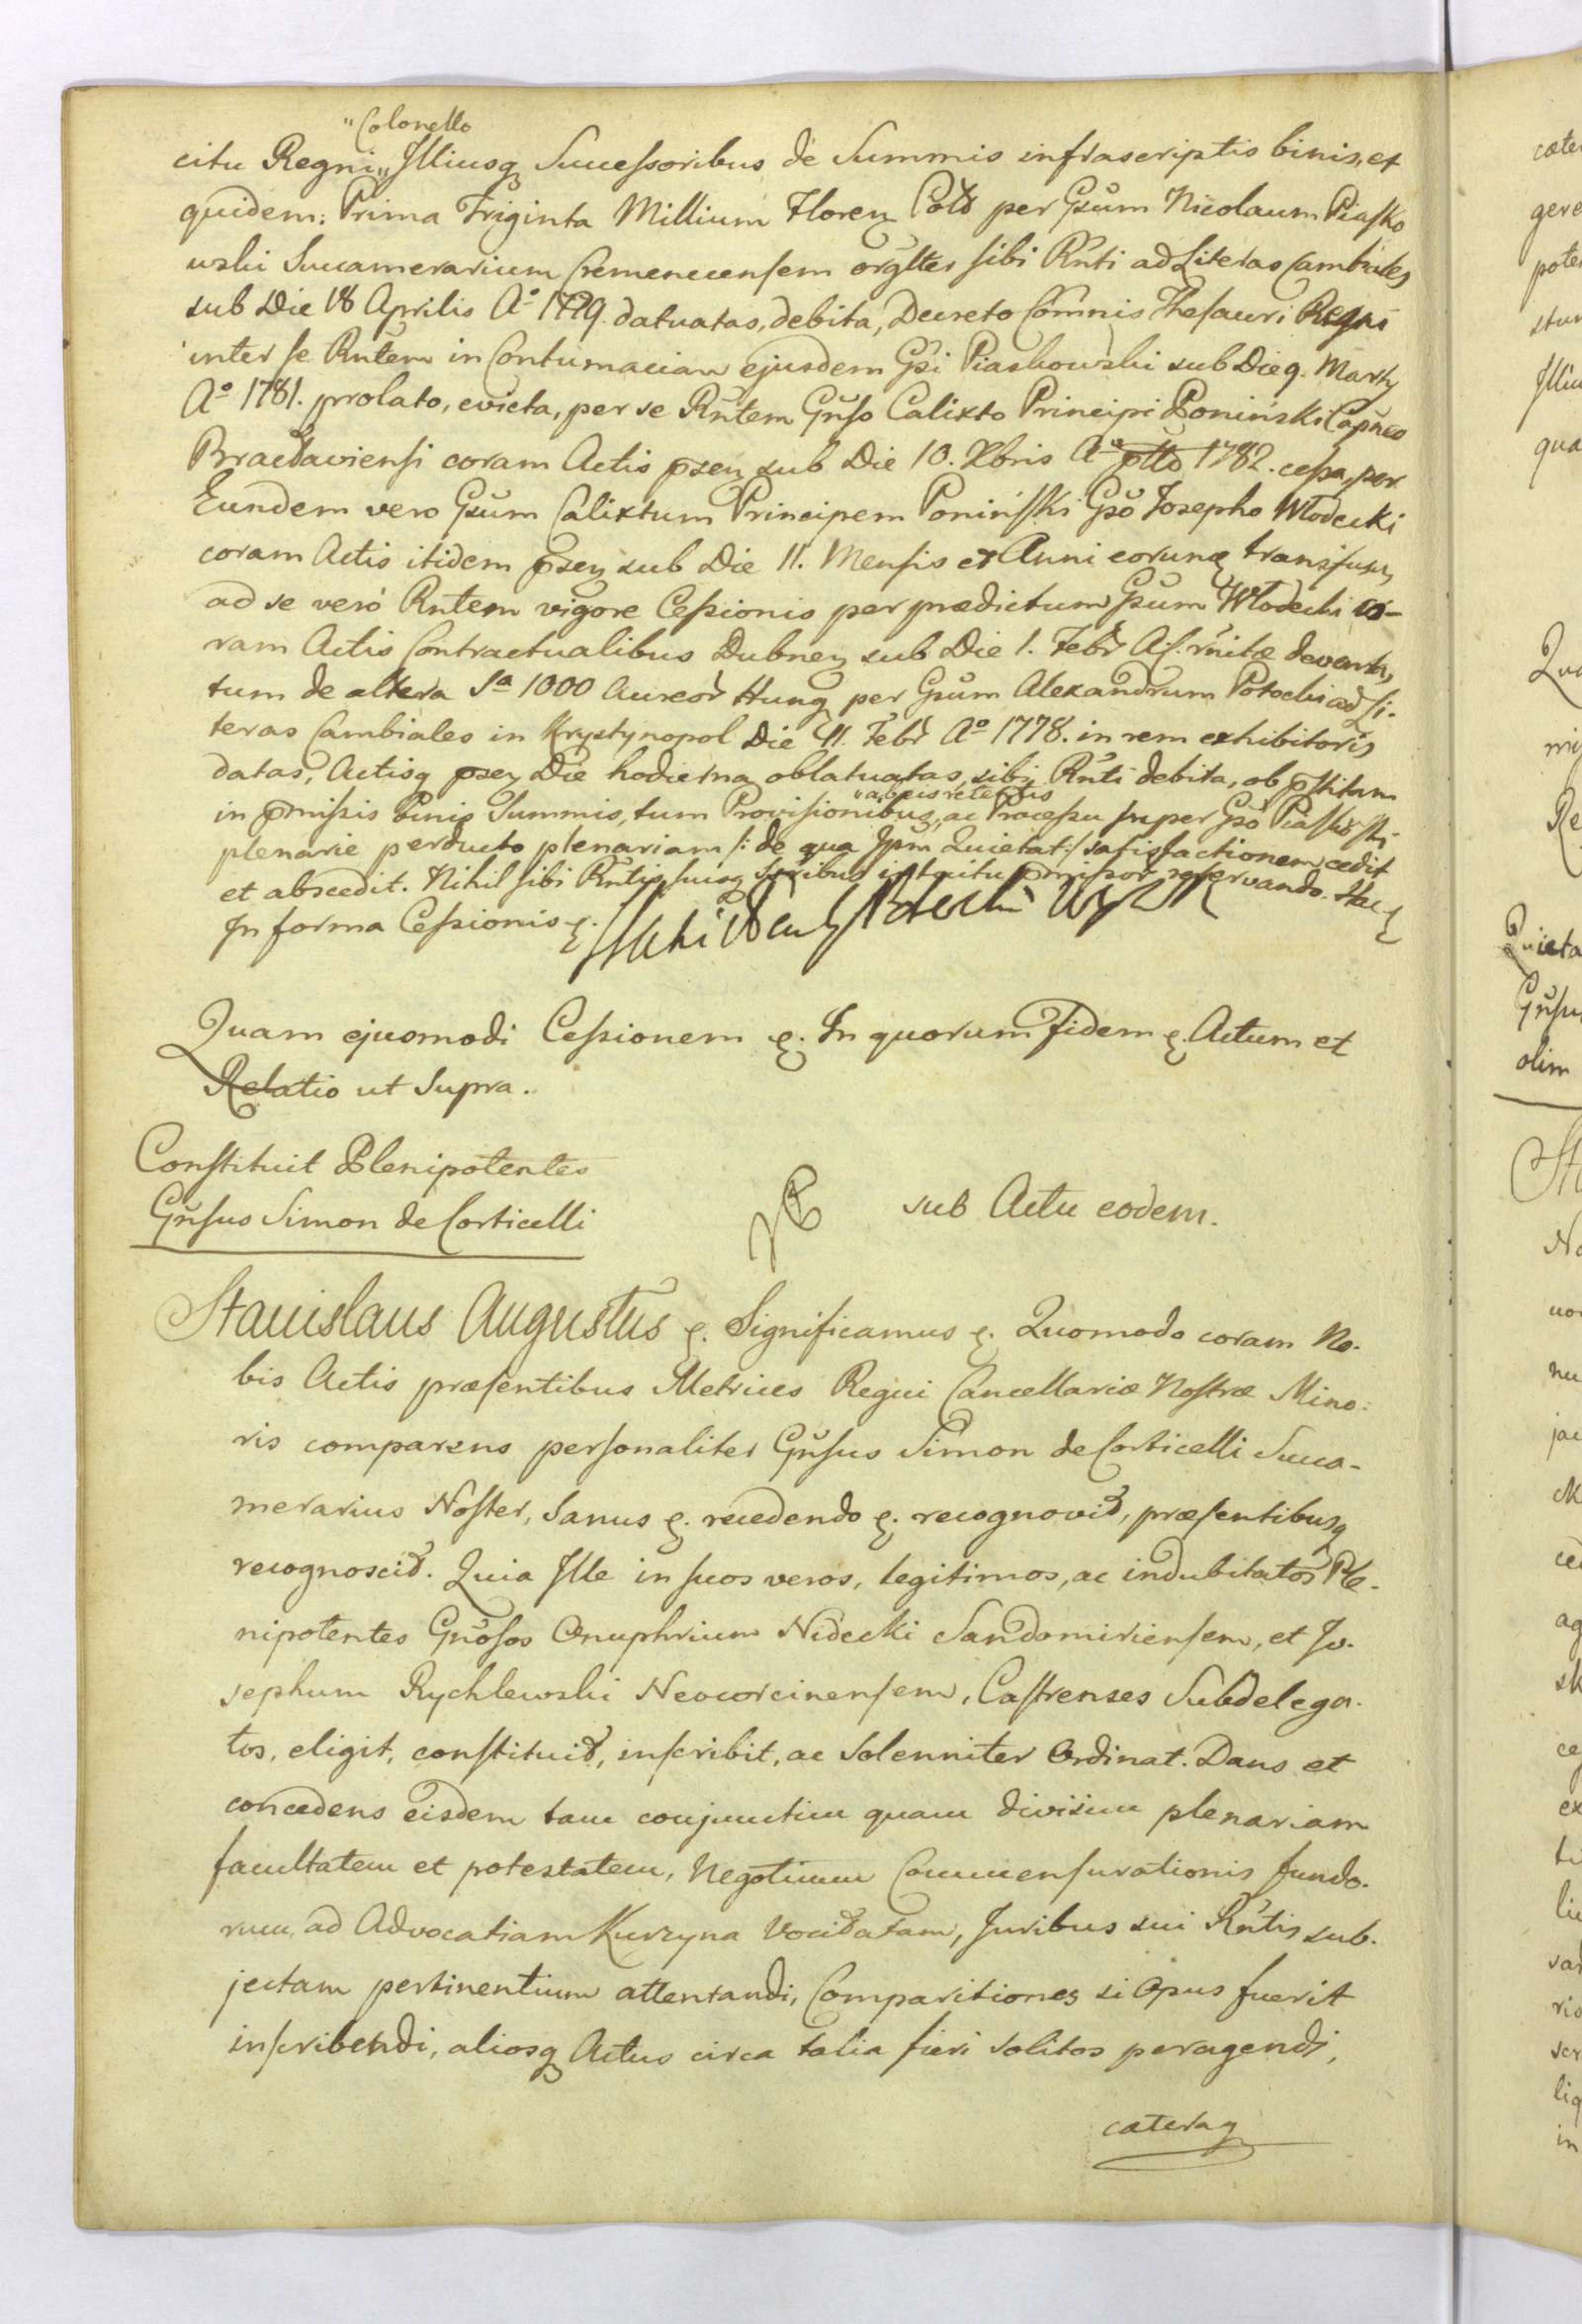 "Colonello
citu Regni,, Illiusq Successoribus de Summis infrascriptis binis, et
quidem: Prima Triginta Millium Floren Pold per Gsum Nicolaum Piasko
wski Succamerarium Cremenecensem orgltes sibi Rnti ad Literas Cambiales
sub Die 18 Aprilis Ao 1779. datuatas, debita, Decreto Comnis Thesauri Regni
inter se Rntem in Contumaciam ejusdem Gsi Piaskowski sub Die 9. Martij
Ao 1781. prolato, evicta, per se Rntem Gnso Calixto Principi Poninski Capneo
Bracłaviensi coram Actis psen sub Die 10. Xbris Ao 1782. cessa, per
Eundem vero Gsum Calixtum Principem Poniński Gso Josepho Włodecki
coram Actis itidem psen sub Die 11. Mensis et Anni eorunq transfusa,
ad se vero Rntem vigore Cessionis per prædictum Gsum Włodecki co-
ram Actis Contractualibus Dubnen sub Die 1. Febr A. devoluta,
tum de altera Sa 1000 Aureor Hung per Gsum Alexandrum Potocki ad Li-
teras Cambiales in Krystynopol Die 11. Febr Ao 1778. in rem exhibitoris
datas, Actisq psen Die hodierna oblatuatas, sibi Rnti debita, ob pstitam
"ab eis retentis
in pmissis binis Summis, tum Provisionibus, ac Processu super Gso Piaskowski
plenarie perducto plenariam /: de qua Ipm Quietat :/ satisfactionem cedit
et abscedit. Nihil sibi Rntis suisq Sscribus intuitu pmissor reservando. Hac
In forma Cessionis
Quam ejusmodi Cessionem &. In quorum fidem &. Actum et
Relatio ut Supra.
Constituit Plenipotentes
Gnsus Simon de Corticelli
sub Actu eodem.
Stanislaus Augustus &. Significamus &. Quomodo coram No-
bis Actis præsentibus Metrices Regni Cancellariæ Nostræ Mino-
ris comparens personaliter Gnsus Simon de Corticelli Succa-
merarius Noster, Sanus &. recedendo &. recognovit, præsentibusq
recognoscit. Quia Ille in suos veros, legitimos, ac indubitatos Ple-
nipotentes Gnosos Onuphrium Nidecki Sandomiriensem, et Jo-
sephum Rychlewski Neocorcinensem, Castrenses Subdelega-
tos, eligit, constituit, inscribit, ac Solenniter Ordinat. Dans et
concedens eisdem tam conjunctim quam divisim plenariam
facultatem et potestatem, Negotium Commensurationis fundo-
rum, ad Advocatiam Kurzyna Vocitatam, Juribus sui Rntis sub-
jectam pertinentium attentandi, Comparitiones si Opus fuerit
inscribendi, aliosq Actus circa talia fieri solitos peragendi,
cæteraq